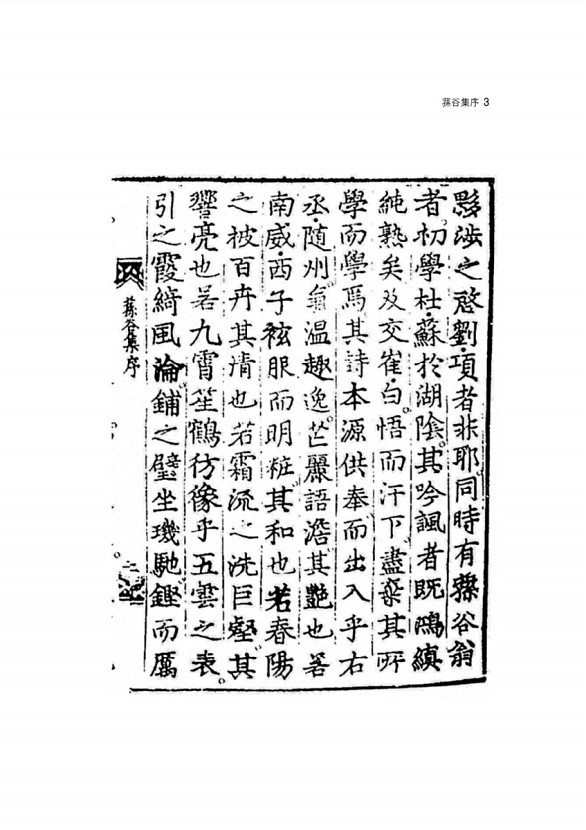 蓀谷集序 3
夥涉之啓劉·項者非耶同時有蓀谷翁
者初學杜·蘇於湖陰其吟諷者旣鴻縝
純熟矣及交崔·白悟而汗下盡棄其所
學而學焉其詩本源供奉而出入乎右
丞·隨州氣溫趣逸芒麗語澹其艶也若
南威·西子袨服而明粧其和也若春陽
之被百卉其淸也若霜流之洗巨壑其
響亮也若九霄笙鶴彷像乎五雲之表
引之霞綺風淪鋪之璧坐璣馳鏗而厲
蓀谷集序
二